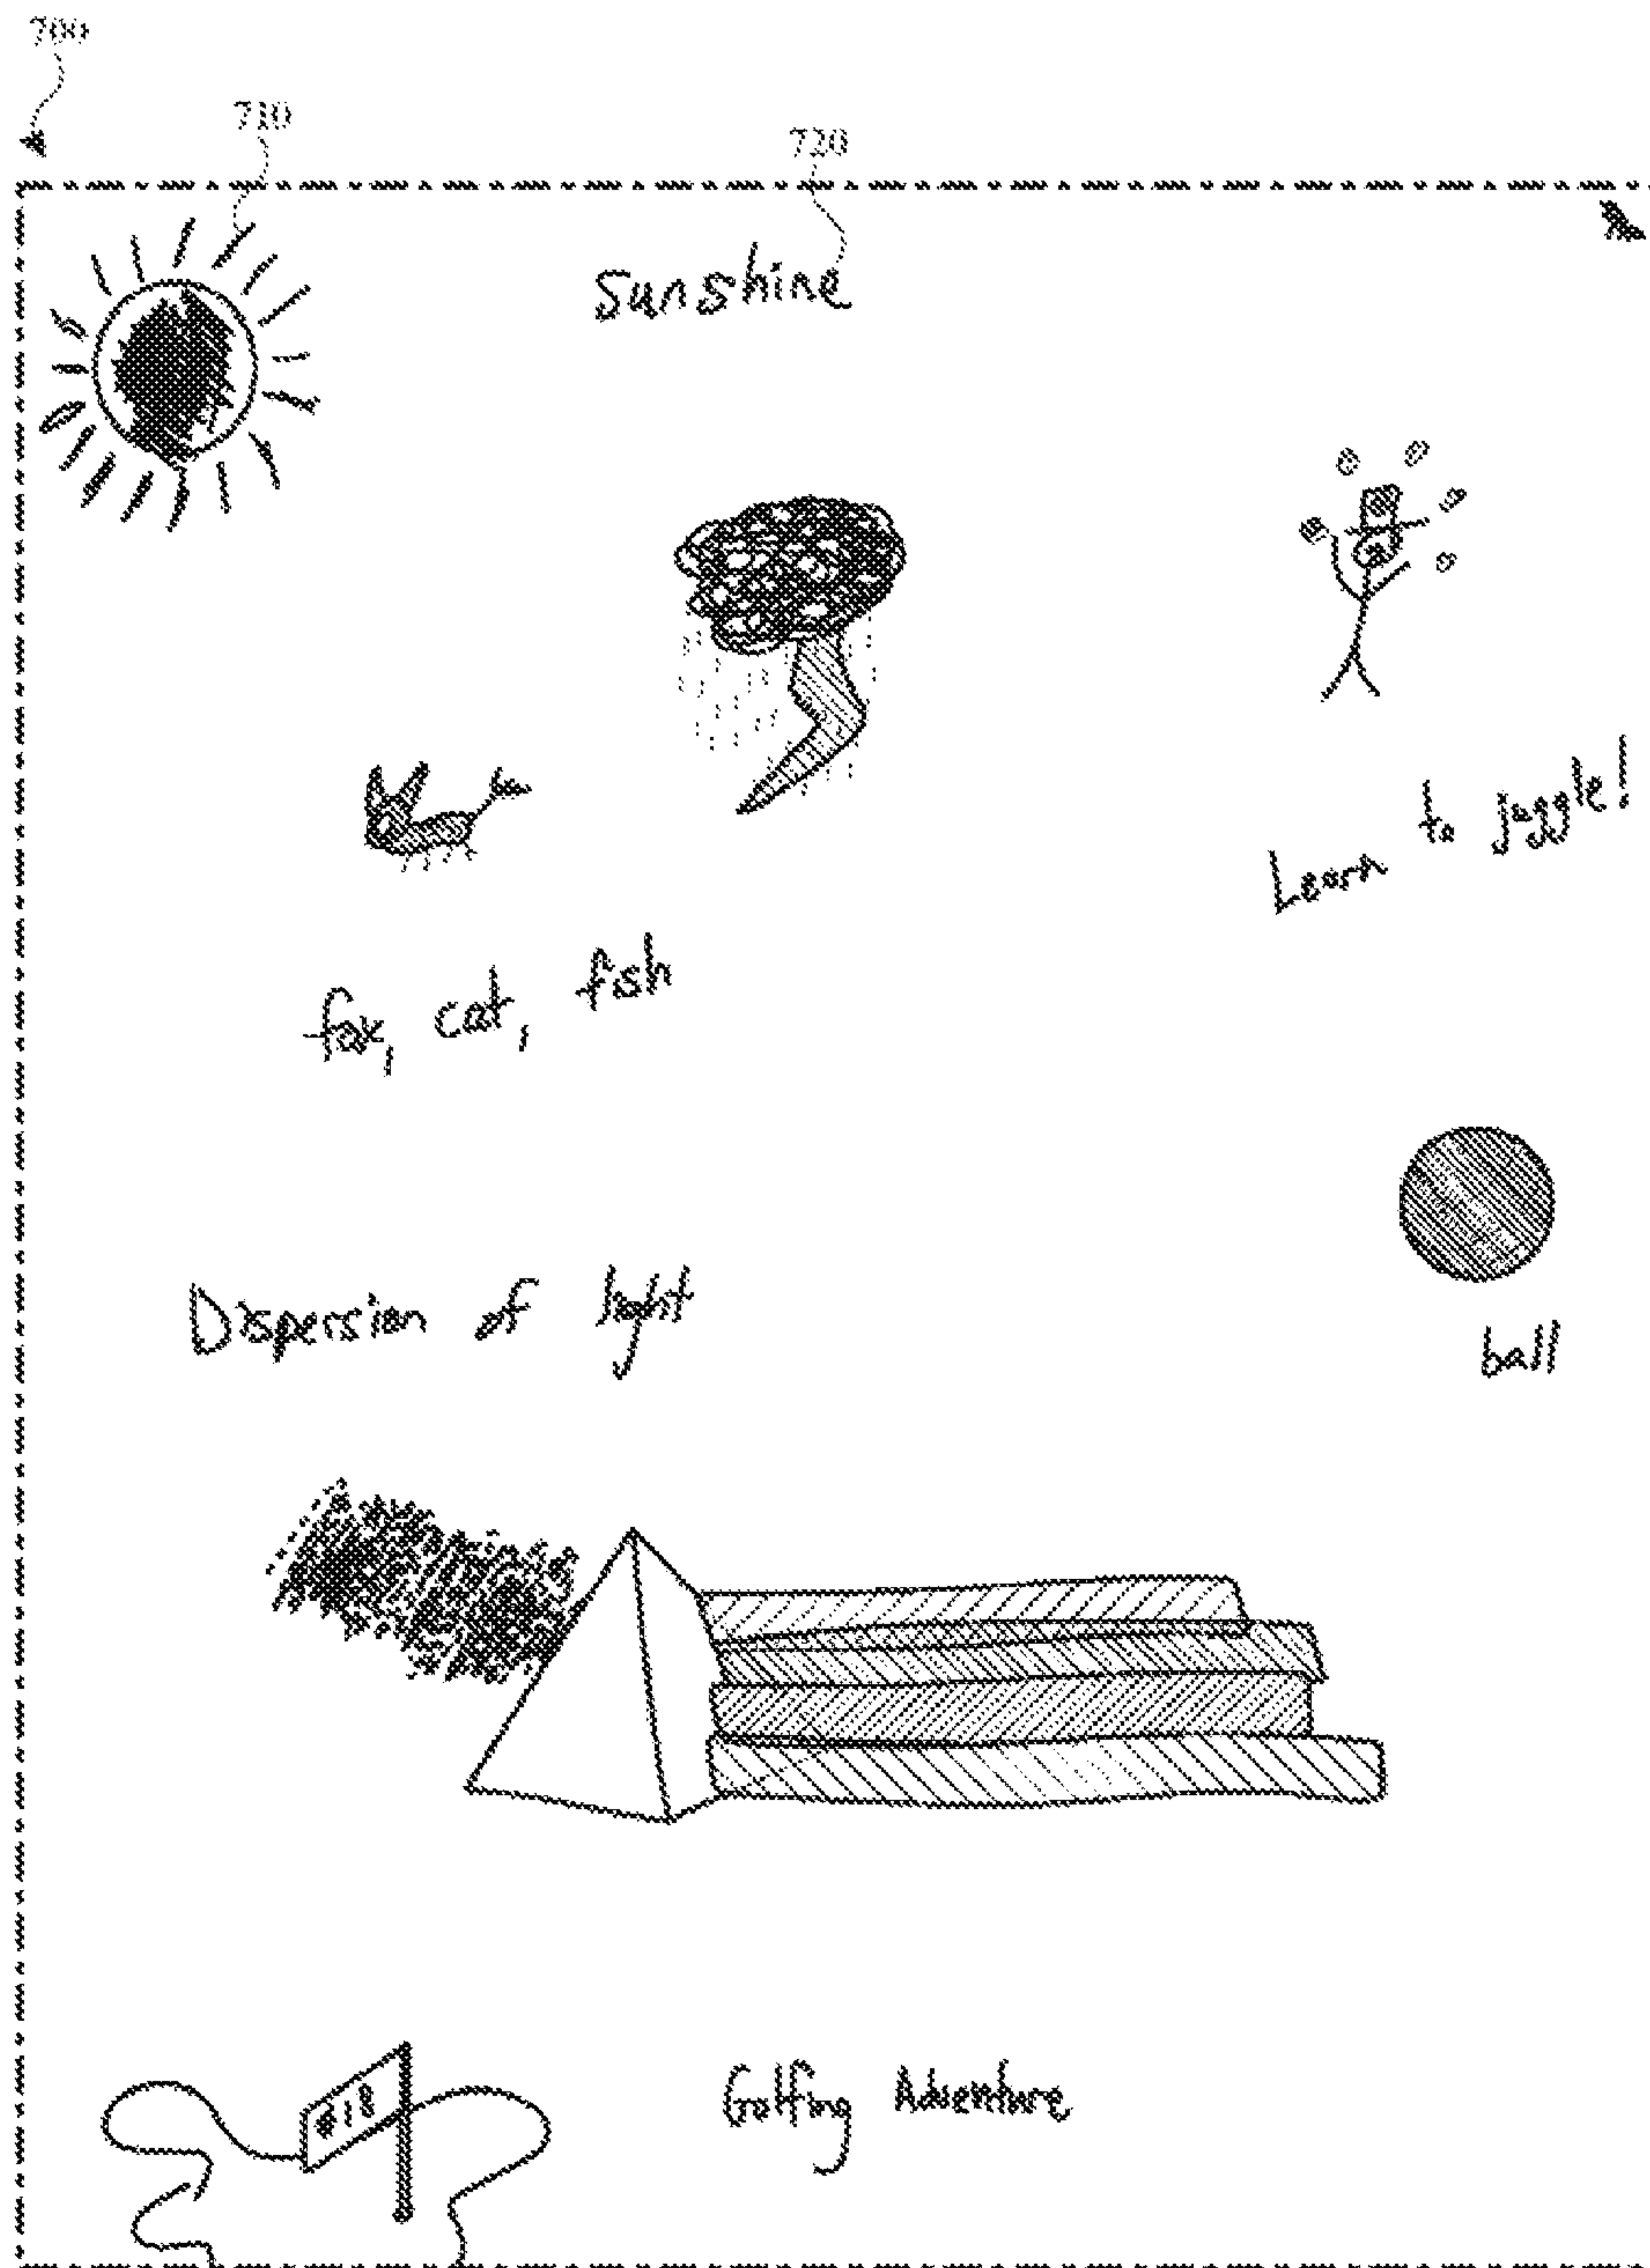 700
710
720
Sunshine
Learn to juggle!
fox, cat, fish
Dispersion of light
ball
#18
Golfing Adventure